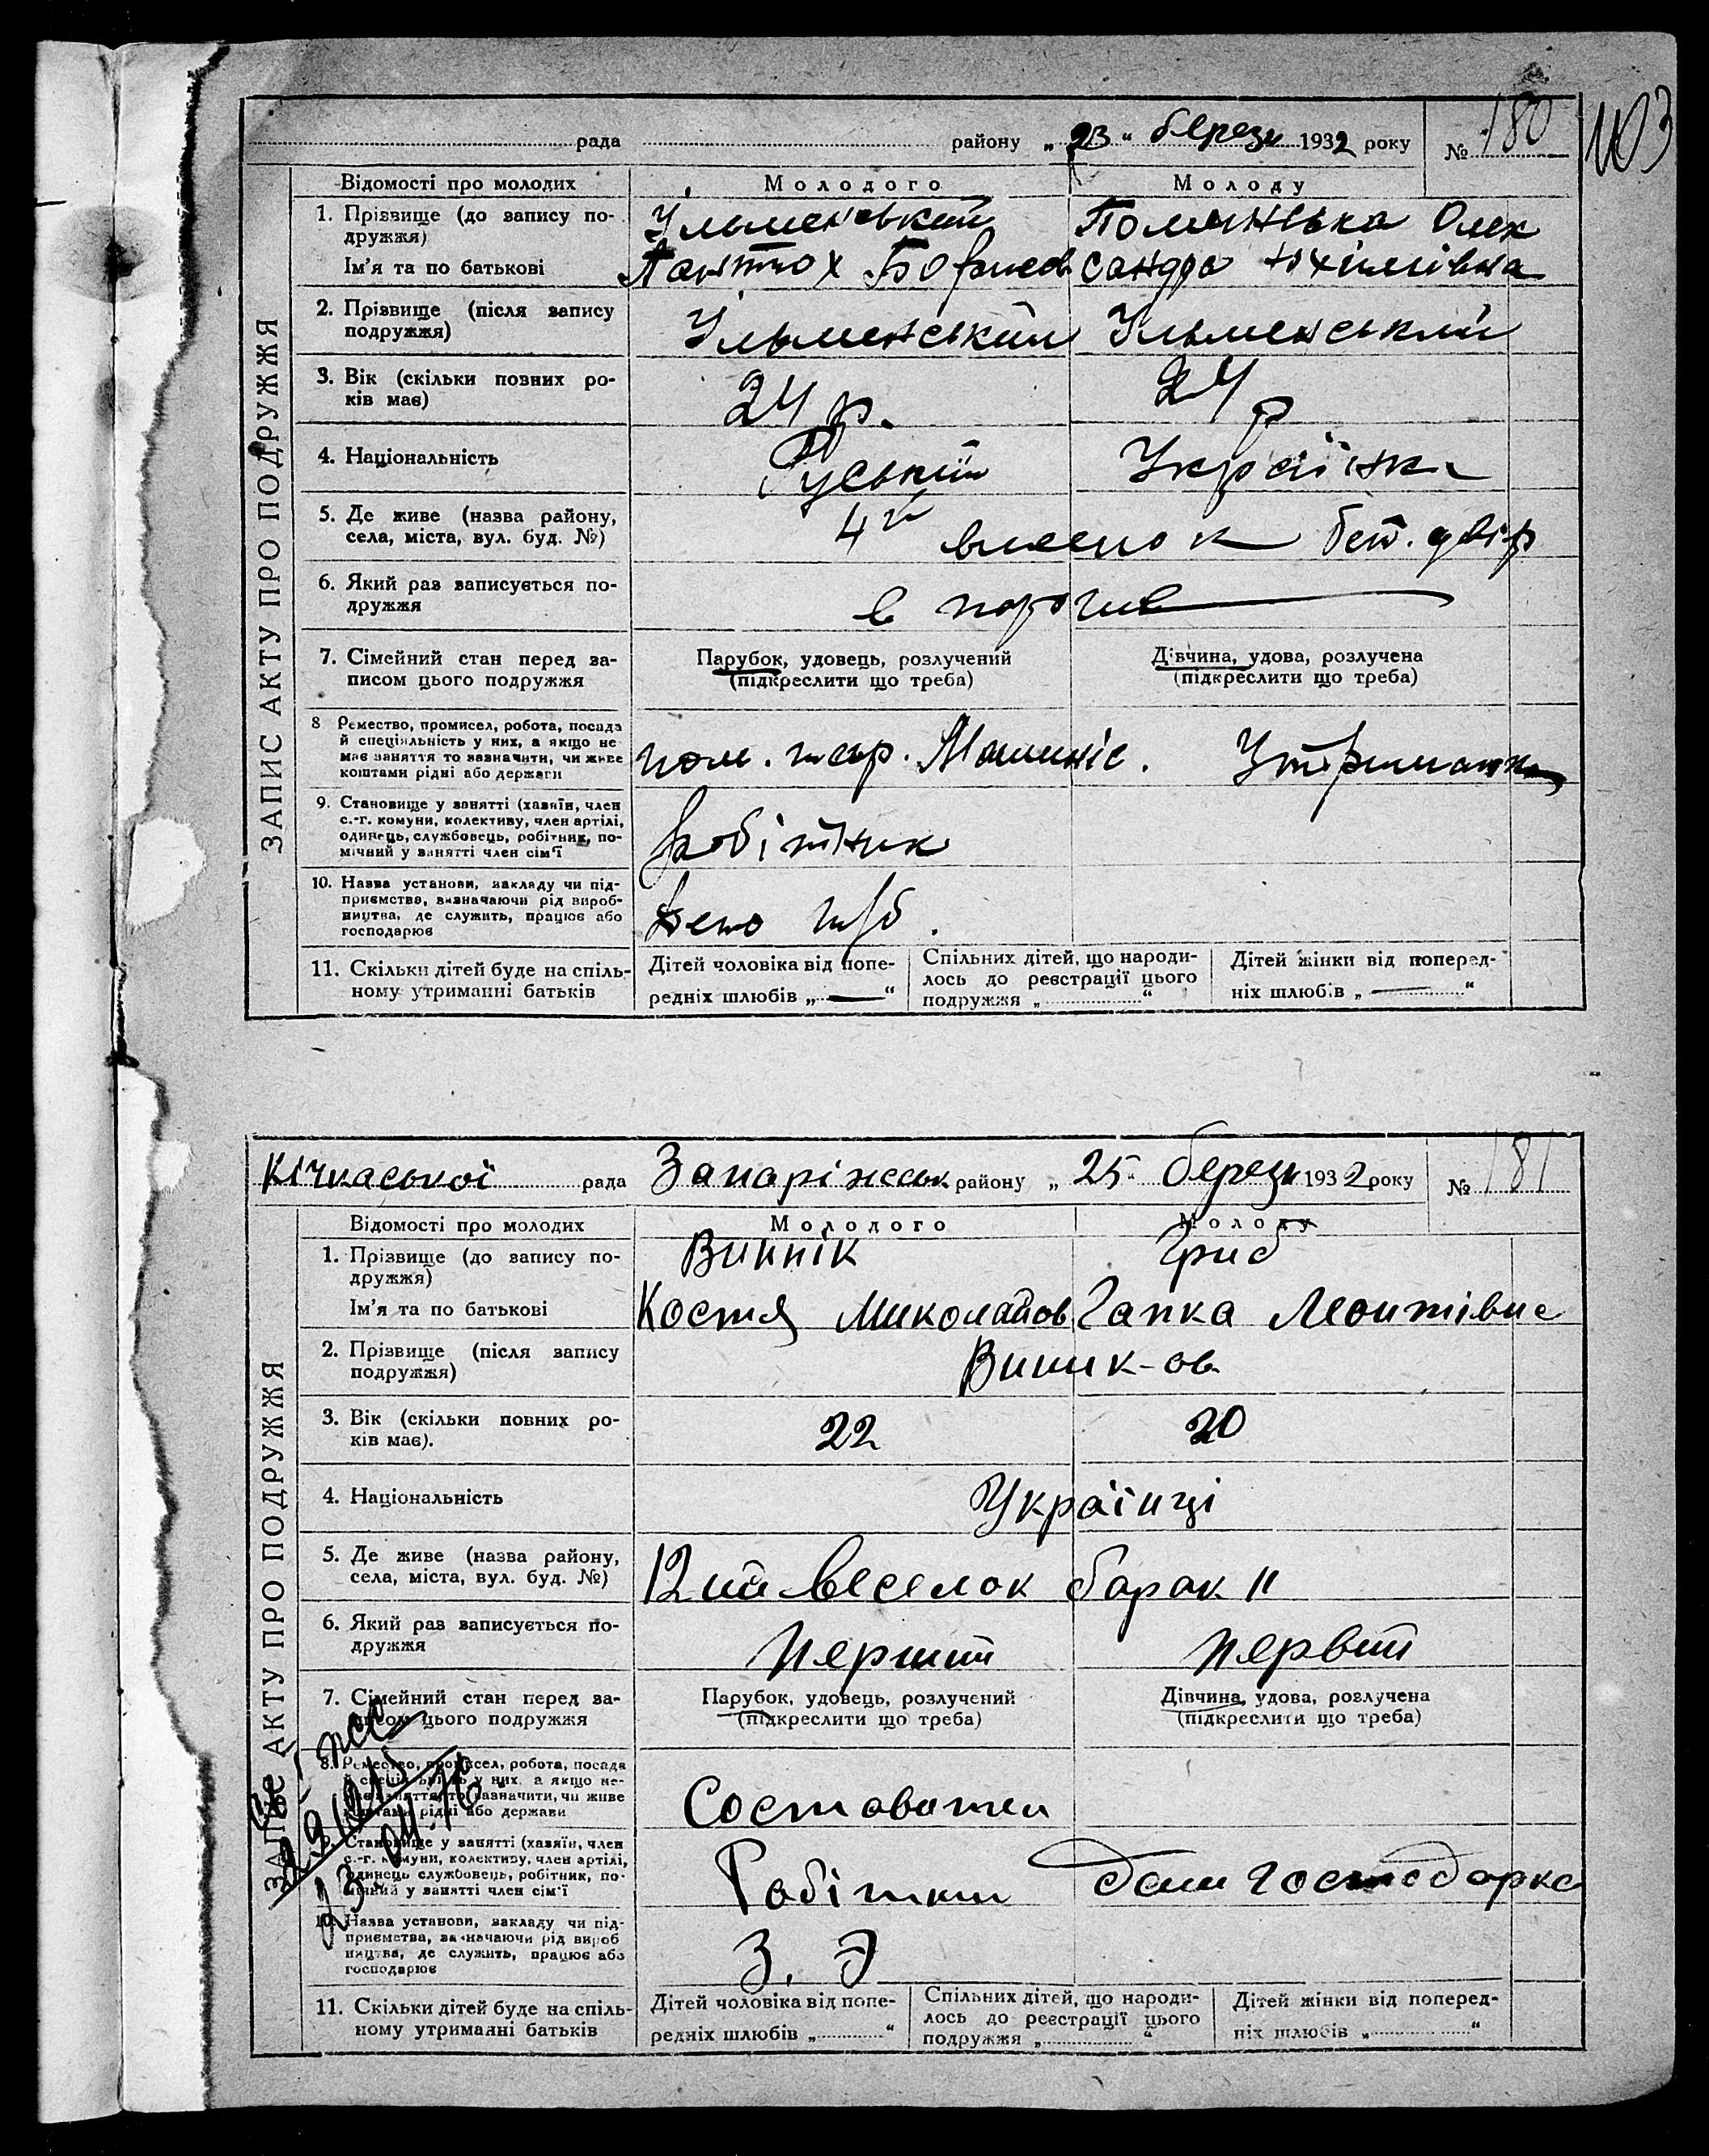 103
рада району „23“ березн 1932 року № 180
ЗАПИС АКТУ ПРО ПОДРУЖЖЯ
Відомості про молодих Молодого Молоду
1. Прізвище (до запису по-
дружжя)
Ім'я та по батькові
Ульменський
Борисов
Олек
сандра Юхимівна
2. Прізвище (після запису
подружжя)
Ульменський Ульменський
3. Вік (скільки повних ро-
ків має)
24 р. 24 р
4. Національність
Руський Українка
5. Де живе (назва району,
села, міста, вул. буд. №)
4й
6. Який раз записується по-
дружжя
в
7. Сімейний стан перед за-
писом цього подружжя
Парубок, удовець, розлучений
(підкреслити що треба)
Дівчина, удова, розлучена
(підкреслити що треба)
8 Ремество, промисел, робота, посада
й спеціяльність у них, а якщо не
має заняття то зазначити, чи живе
коштами рідні або держави
пом. Машиніс. Утриманка
9. Становище у занятті (хазяїн, член
с.-г. комуни, колективу, член артілі,
одинець, службовець, робітник, по-
мічний у занятті член сім'ї
робітник
10. Назва установи, закладу чи під-
приємства, визначаючи рід вироб-
ництва, де служить, працює або
господарює
Депо
11. Скільки дітей буде на спіль-
ному утриманні батьків
Дітей чоловіка від попе-
редніх шлюбів „—“
Спільних дітей, що народи-
лось до реєстрації цього
подружжя „ “
Дітей жінки від поперед-
ніх шлюбів „—“
Кічкаської рада Запаріжськ району „25“ березн 1932 року № 181
ЗАПИС АКТУ ПРО ПОДРУЖЖЯ
Відомості про молодих Молодого Молоду
1. Прізвище (до запису по-
дружжя)
Ім'я та по батькові
Виннік Гриб
Костя Миколайов Гапка Леонтівна
2. Прізвище (після запису
подружжя)
Винник-ов
3. Вік (скільки повних ро-
ків має).
22 20
4. Національність
Українці
5. Де живе (назва району,
села, міста, вул. буд. №)
12 ий веселок барак 11
6. Який раз записується по-
дружжя
Перший Первий
7. Сімейний стан перед за-
писом цього подружжя
Парубок, удовець, розлучений
(підкреслити що треба)
Дівчина, удова, розлучена
(підкреслити що треба)
8. Ремество, промисел, робота, посада
й спеціяльність у них, а якщо не-
має заняття то зазначити, чи живе
коштами рідні або держави
Составител
9. Становище у занятті (хазяїн, член
с.-г. комуни, колективу, член артілі,
одинець службовець, робітник, по-
мічний у занятті член сім'ї
Робітник дом господарка
10. Назва установи, закладу чи під-
приємства, зазначаючи рід вироб
ництва, де служить, працює або
господарює
З. Д
11. Скільки дітей буде на спіль-
ному утриманні батьків
Дітей чоловіка від попе-
редніх шлюбів „ “
Спільних дітей, що народи-
лось до реєстрації цього
подружжя „ “
Дітей жінки від поперед-
ніх шлюбів „ “